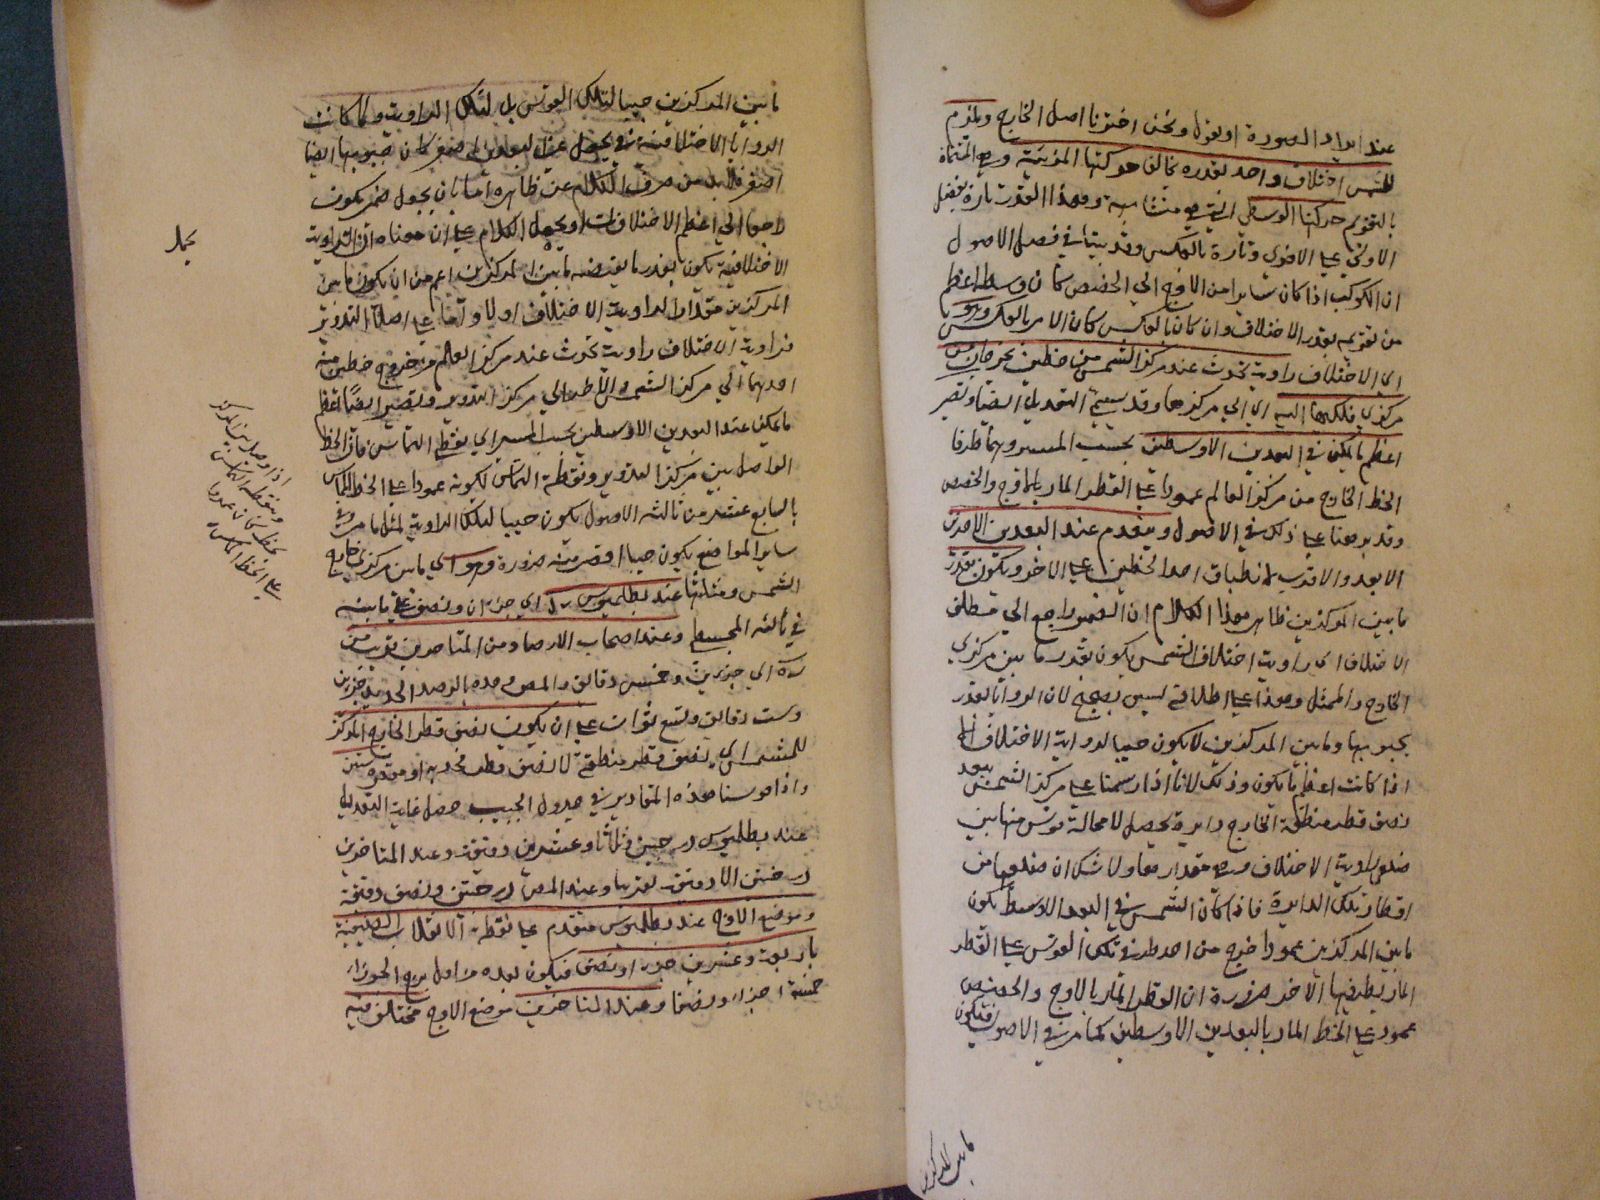 عند ايراد الصورة او نقول ونحن اخترنا اصل الخارج ويلزم
للشمس اختلاف واحد بقدره يخالف حركتها المرئية وهي المسماة
بالتقويم حركتها الوسطى التي هي متشابهة وهذا القدر تارة يفضل
الاولى على الاخرى وتارة بالعكس وقد بينا في فصل الاصول
ان الكوكب اذا كان سايرا من الاوج الى الحضيض كان وسطه اعظم
من تقويمه بقدر الاختلاف وان كان بالعكس كان الامر بالعكس وهو
اي الاختلاف زاوية تحدث عند مركز الشمس من خطين يخرجان من
مركزي فلكيها اليه اي الى مركزها وقد يسمى التعديل ايضا وتصير
اعظم ما يمكن في البعدين الاوسطين بحسب المسير وهما طرفا
الخط الخارج من مركز العالم عمودا على القطر المار بالاوج والحضيض
وقد برهنا على ذلك في الاصول وينعدم عند البعدين الاخرين
الابعد والاقرب لانطباق احد الخطين على الاخر ويكون بقدر
ما بين المركزين ظاهر هذا الكلام ان الضمير راجع الى مطلق
الاختلاف اي زاوية اختلاف الشمس يكون بقدر ما بين مركزي
الخارج والممثل وهذا على اطلاقه ليس بصحيح لان الزوايا بقدر
بجيوبها وما بين المركزين لا يكون جيبا لزواية الاختلاف الا
اذا كانت اعظم ما يكون وذلك لانا اذا رسمنا على مركز الشمس ببعد
نصف قطر منطقة الخارج دايرة يحصل لا محالة قوس منها بين
ضلعي زاوية الاختلاف وهي مقدارها ولا شك ان ضلعيها من
اقطار تلك الدايرة فاذا كان الشمس في البعد الاوسط يكون
ما بين المركزين عمودا خرج من احد طرفي تلك القوس على القطر
المار بطرفها الآخر ضرورة ان القطر المار بالاوج والحضيض
عمود على الخط المار بالبعدين الاوسطين كما مر في الاصول فيكون
ما بين المركزين
ما بين المركزين جيبا لتلك القوس بل لتلك الزاوية ولما كانت
الزوايا الاختلافية في غير البعدين اصغر كان جيوبها ايضا
اصغر فلا بد من صرف الكلام عن ظاهره اما بان يجعل ضمير يكون
راجعا الى اعظم الاختلافات او يحمل الكلام على ان معناه ان الزاوية
الاختلافية يكون بقدر ما يقتضيه ما بين المركزين اعم من ان يكون ما بين
المركزين مقدار الزاوية الاختلاف اولا واما على اصل التدوير
فزاوية الاختلاف زاوية تحدث عند مركز العالم من خروج خطين منه
احدهما الى مركز الشمس والآخر الى مركز التدوير وتصير ايضا اعظم
ما يمكن عند البعدين الاوسطين بحسب المسير اي نقطتي التماس فان الخط
الواصل بين مركز التدوير ونقطة التماس لكونه عمودا على الخط المماس
بالسابع عشر من ثالثة الاصول يكون جيبا لتلك الزاوية لمثل ما مر وفي
ساير المواضع يكون جيبا اقصر منه ضرورة وهو اي ما بين مركزي خارج
الشمس ومثلها عند بطلميوس ب ل اي جزءان ونصف على ما بينه
في ثالثة المجسطي وعند اصحاب الارصاد من المتاخرين قريب من
ب ه اي جزءين وخمس دقائق والمص وجده بالرصد الجديد جزءين
وست دقائق وتسع ثوان على ان يكون نصف قطر الخارج المركز
للشمس اي نصف قطر منطقته لا نصف قطر محدبه او مقعره ستين
واذا قوسنا هذه المقادير في جدول الجيب حصل غاية التعديل
عند بطلميوس درجتين وثلاثا وعشرين دقيقة وعند المتاخرين
درجتين الا دقيقة تقريبا وعند المص درجتين ونصف دقيقة
وموضع الاوج عند بطلميوس متقدم على نقطة الانقلاب الصيفية
باربعة وعشرين جزءا ونصف فيكون بعده من اول برج الجوزاء
خمسة اجزاء ونصفا وعند المتاخرين موضع الاوج مختلف فيه